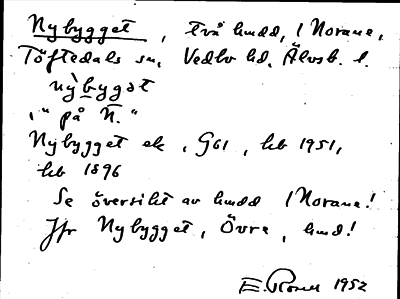 Nybygget, två hmdd, / Norane,
Töftedals sn, Vedbo hd, Älvsb. l.
nỳbygət
"på N."
Nybygget ek, G61, hb 1951,
hb 1896
Se översikt av hmdd / Norane!
Jfr Nybygget, Övre, hmd!
E. 1952